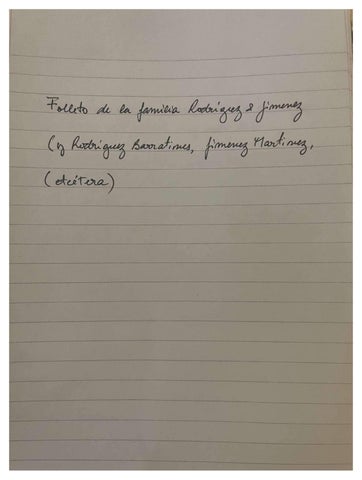 Folleto de la familia Rodríguez & Jimenez
(y Rodríguez Barratines, Jimenez Martinez,
(etcétera)